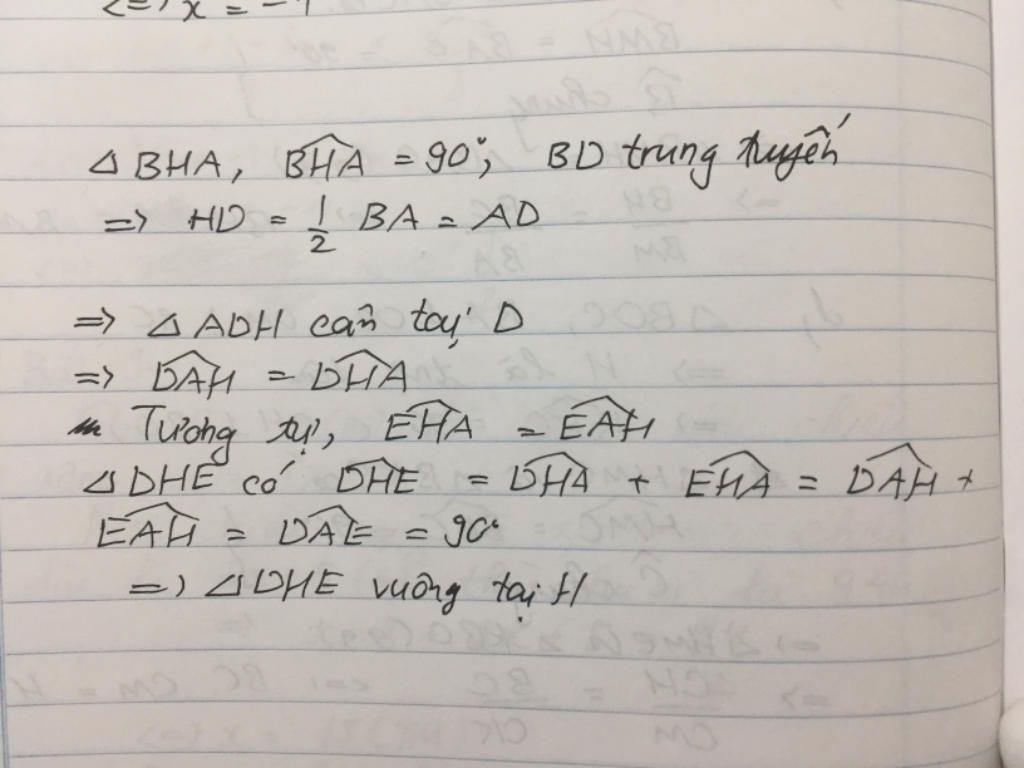 <=> x = -1
△BHA, BHA = 90°, BD trung tuyến
=> HD = 1/2 BA = AD
=> △ADH cân tại D
=> DAH = DHA
Tương tự, EHA = EAH
△DHE có DHE = DHA + EHA = DAH +
EAH = DAE = 90°
=> △DHE vuông tại H